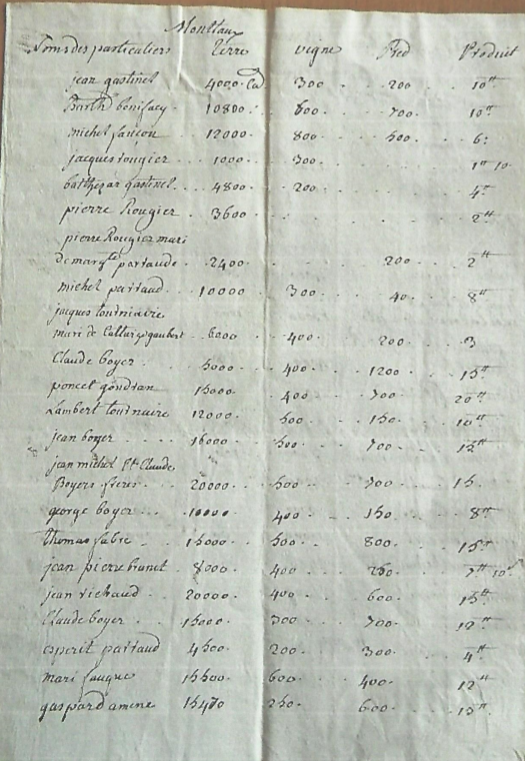 Montlaux
Noms des particuliers terre vigne Pred Produit
jean gastinel 4000 300 200 10tt
Barth bonifacy 10800 600 700 10tt
michel faucon 12000 800 500 6
jacques rougier 1000 300 1tt 10
balthezar gastinel 4800 200 4tt
pierre Rougier 3600 2tt
pierre Rougier mari
de margte partaude 2400 200 2tt
michel partaud 10000 300 40 8tt
jacques tourniaire
mari de gaubert 6000 400 200 3
Claude boyer 5000 400 1200 15tt
poncet gondran 15000 400 700 20tt
Lambert tournaire 12000 500 150 10tt
jean boyer 16000 500 700 12tt
jean michel et Claude
Boyers freres 20000 500 700 15
george boyer 10000 400 150 8tt
thomas fabre 15000 500 800 15tt
jean pierre brunet 8000 400 250 7tt 10s
jean richaud 20000 400 600 15tt
Claude boyer 15000 300 700 12tt
esperit partaud 4500 200 300 4tt
mari fauque 15500 600 400 12tt
gaspard amene 15470 250 600 15tt